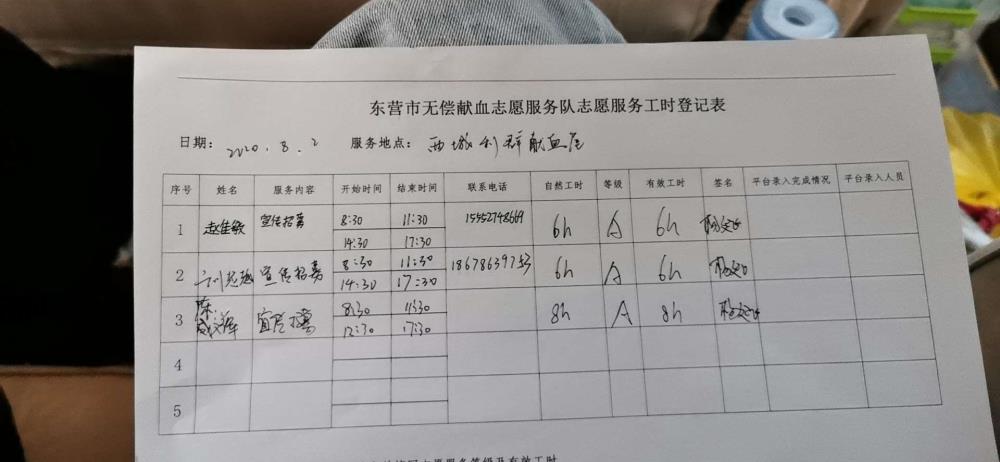 东营市无偿献血志愿服务队志愿服务工时登记表
日期: 2020.8.2 服务地点: 西城利群献血屋
序号 姓名 服务内容 开始时间 结束时间 联系电话 自然工时 等级 有效工时 签名 平台录入完成情况 平台录入人员
1 赵佳敏 宣传招募 8:30 11:30 15552748669 6h A 6h
14:30 17:30
2 宣传招募 8:30 11:30 18678639753 6h A 6h
14:30 17:30
3 陈 宣传招募 8:30 11:30 8h A 8h
12:30 17:30
4
5
志愿服务等级及有效工时